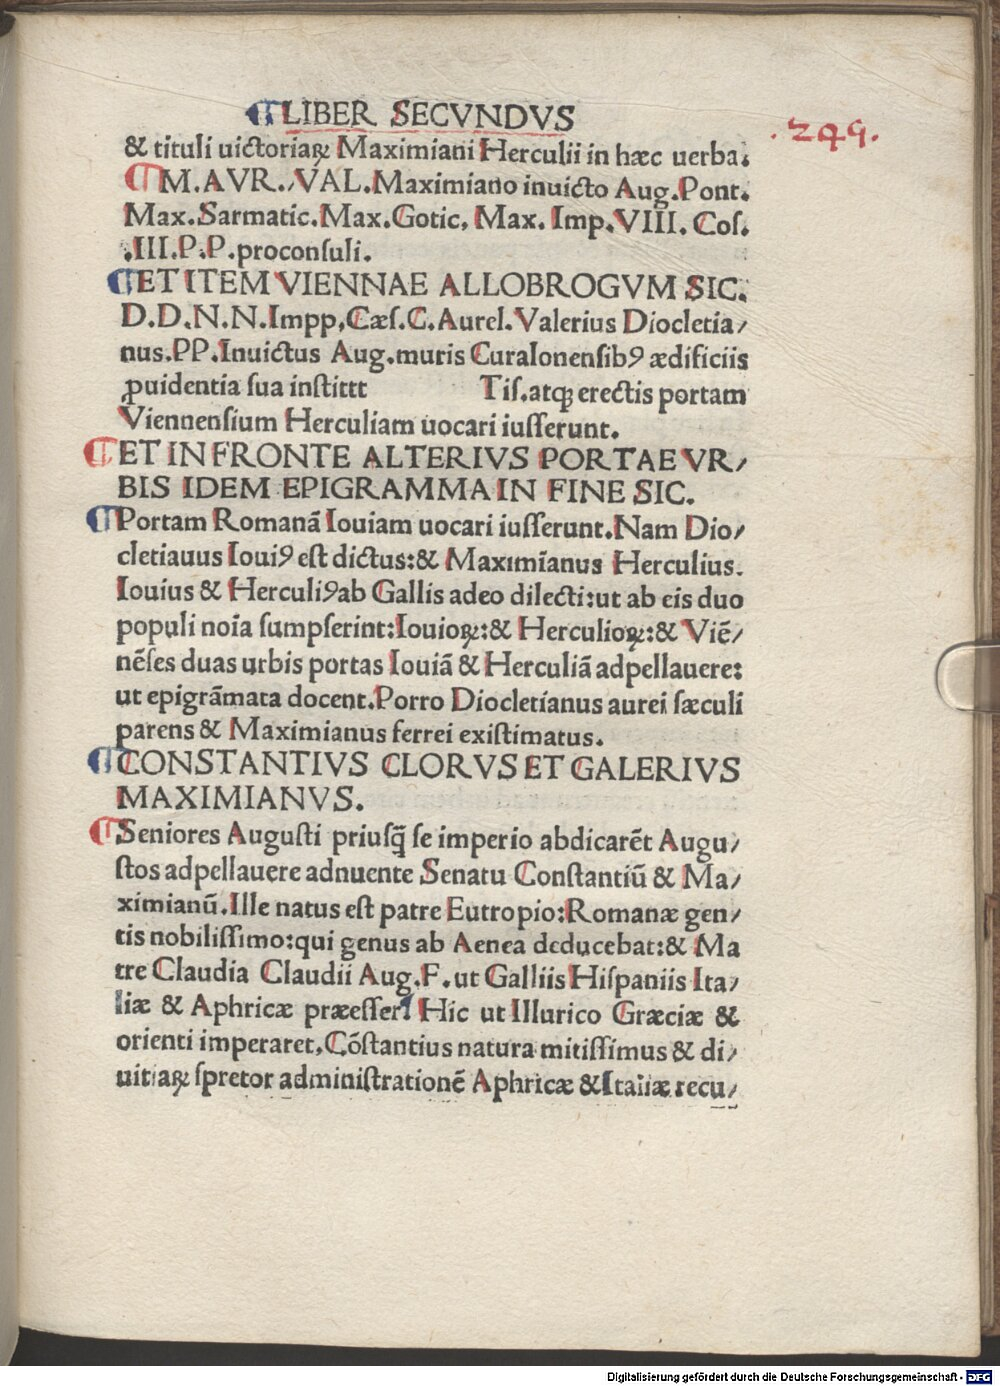 ¶LIBER SECVNDVS
.249.
& tituli uictoriaꝝ Maximiani Herculii in hæc uerba.
¶M.AVR.VAL.Maximiano inuicto Aug.Pont.
Max.Sarmatic.Max.Gotic. Max. Imp.VIII. Coſ.
.III.P.P.proconſuli.
¶ET ITEM VIENNAE ALLOBROGVM SIC.
D.D.N.N.Impp.Cæſ.C.Aurel.Valerius Diocletia/
nus.PP.Inuictus Aug.muris Curalonenſibꝰ ædificiis
ꝓuidentia ſua inſtittt Tiſ.atqꝫ erectis portam
Viennenſium Herculiam uocari iuſſerunt.
¶ET IN FRONTE ALTERIVS PORTAE VR/
BIS IDEM EPIGRAMMA IN FINE SIC.
¶Portam Romanā Iouiam uocari iuſſerunt.Nam Dio/
cletiauus Iouiꝰ eſt dictus:& Maximianus Herculius.
Iouius & Herculiꝰ ab Gallis adeo dilecti:ut ab eis duo
populi noīa ſumpſerint:Iouioꝝ:& Herculioꝝ:& Viē/
nēſes duas urbis portas Iouiā & Herculiā adpellauere:
ut epigrāmata docent.Porro Diocletianus aurei ſæculi
parens & Maximianus ferrei exiſtimatus.
¶CONSTANTIVS CLORVS ET GALERIVS
MAXIMIANVS.
¶Seniores Auguſti priuſq̄ ſe imperio abdicarēt Augu/
ſtos adpellauere adnuente Senatu Conſtantiū & Ma/
ximianū.Ille natus eſt patre Eutropio:Romanæ gen/
tis nobiliſſimo:qui genus ab Aenea deducebat:& Ma
tre Claudia Claudii Aug.F.ut Galliis Hiſpaniis Ita/
liæ & Aphricæ præeſſet Hic ut Illurico Græciæ &
orienti imperaret.Cōſtantius natura mitiſſimus & di/
uitiaꝝ ſpretor adminiſtrationē Aphricæ & Italiæ recu/
Digitalisierung gefördert durch die Deutsche Forschungsgemeinschaft - DFG